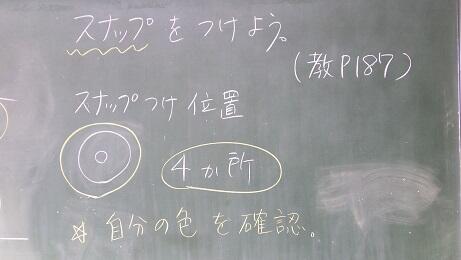 スナップをつけよう。
(教P187)
スナップつけ位置
4か所
☆自分の色を確認。